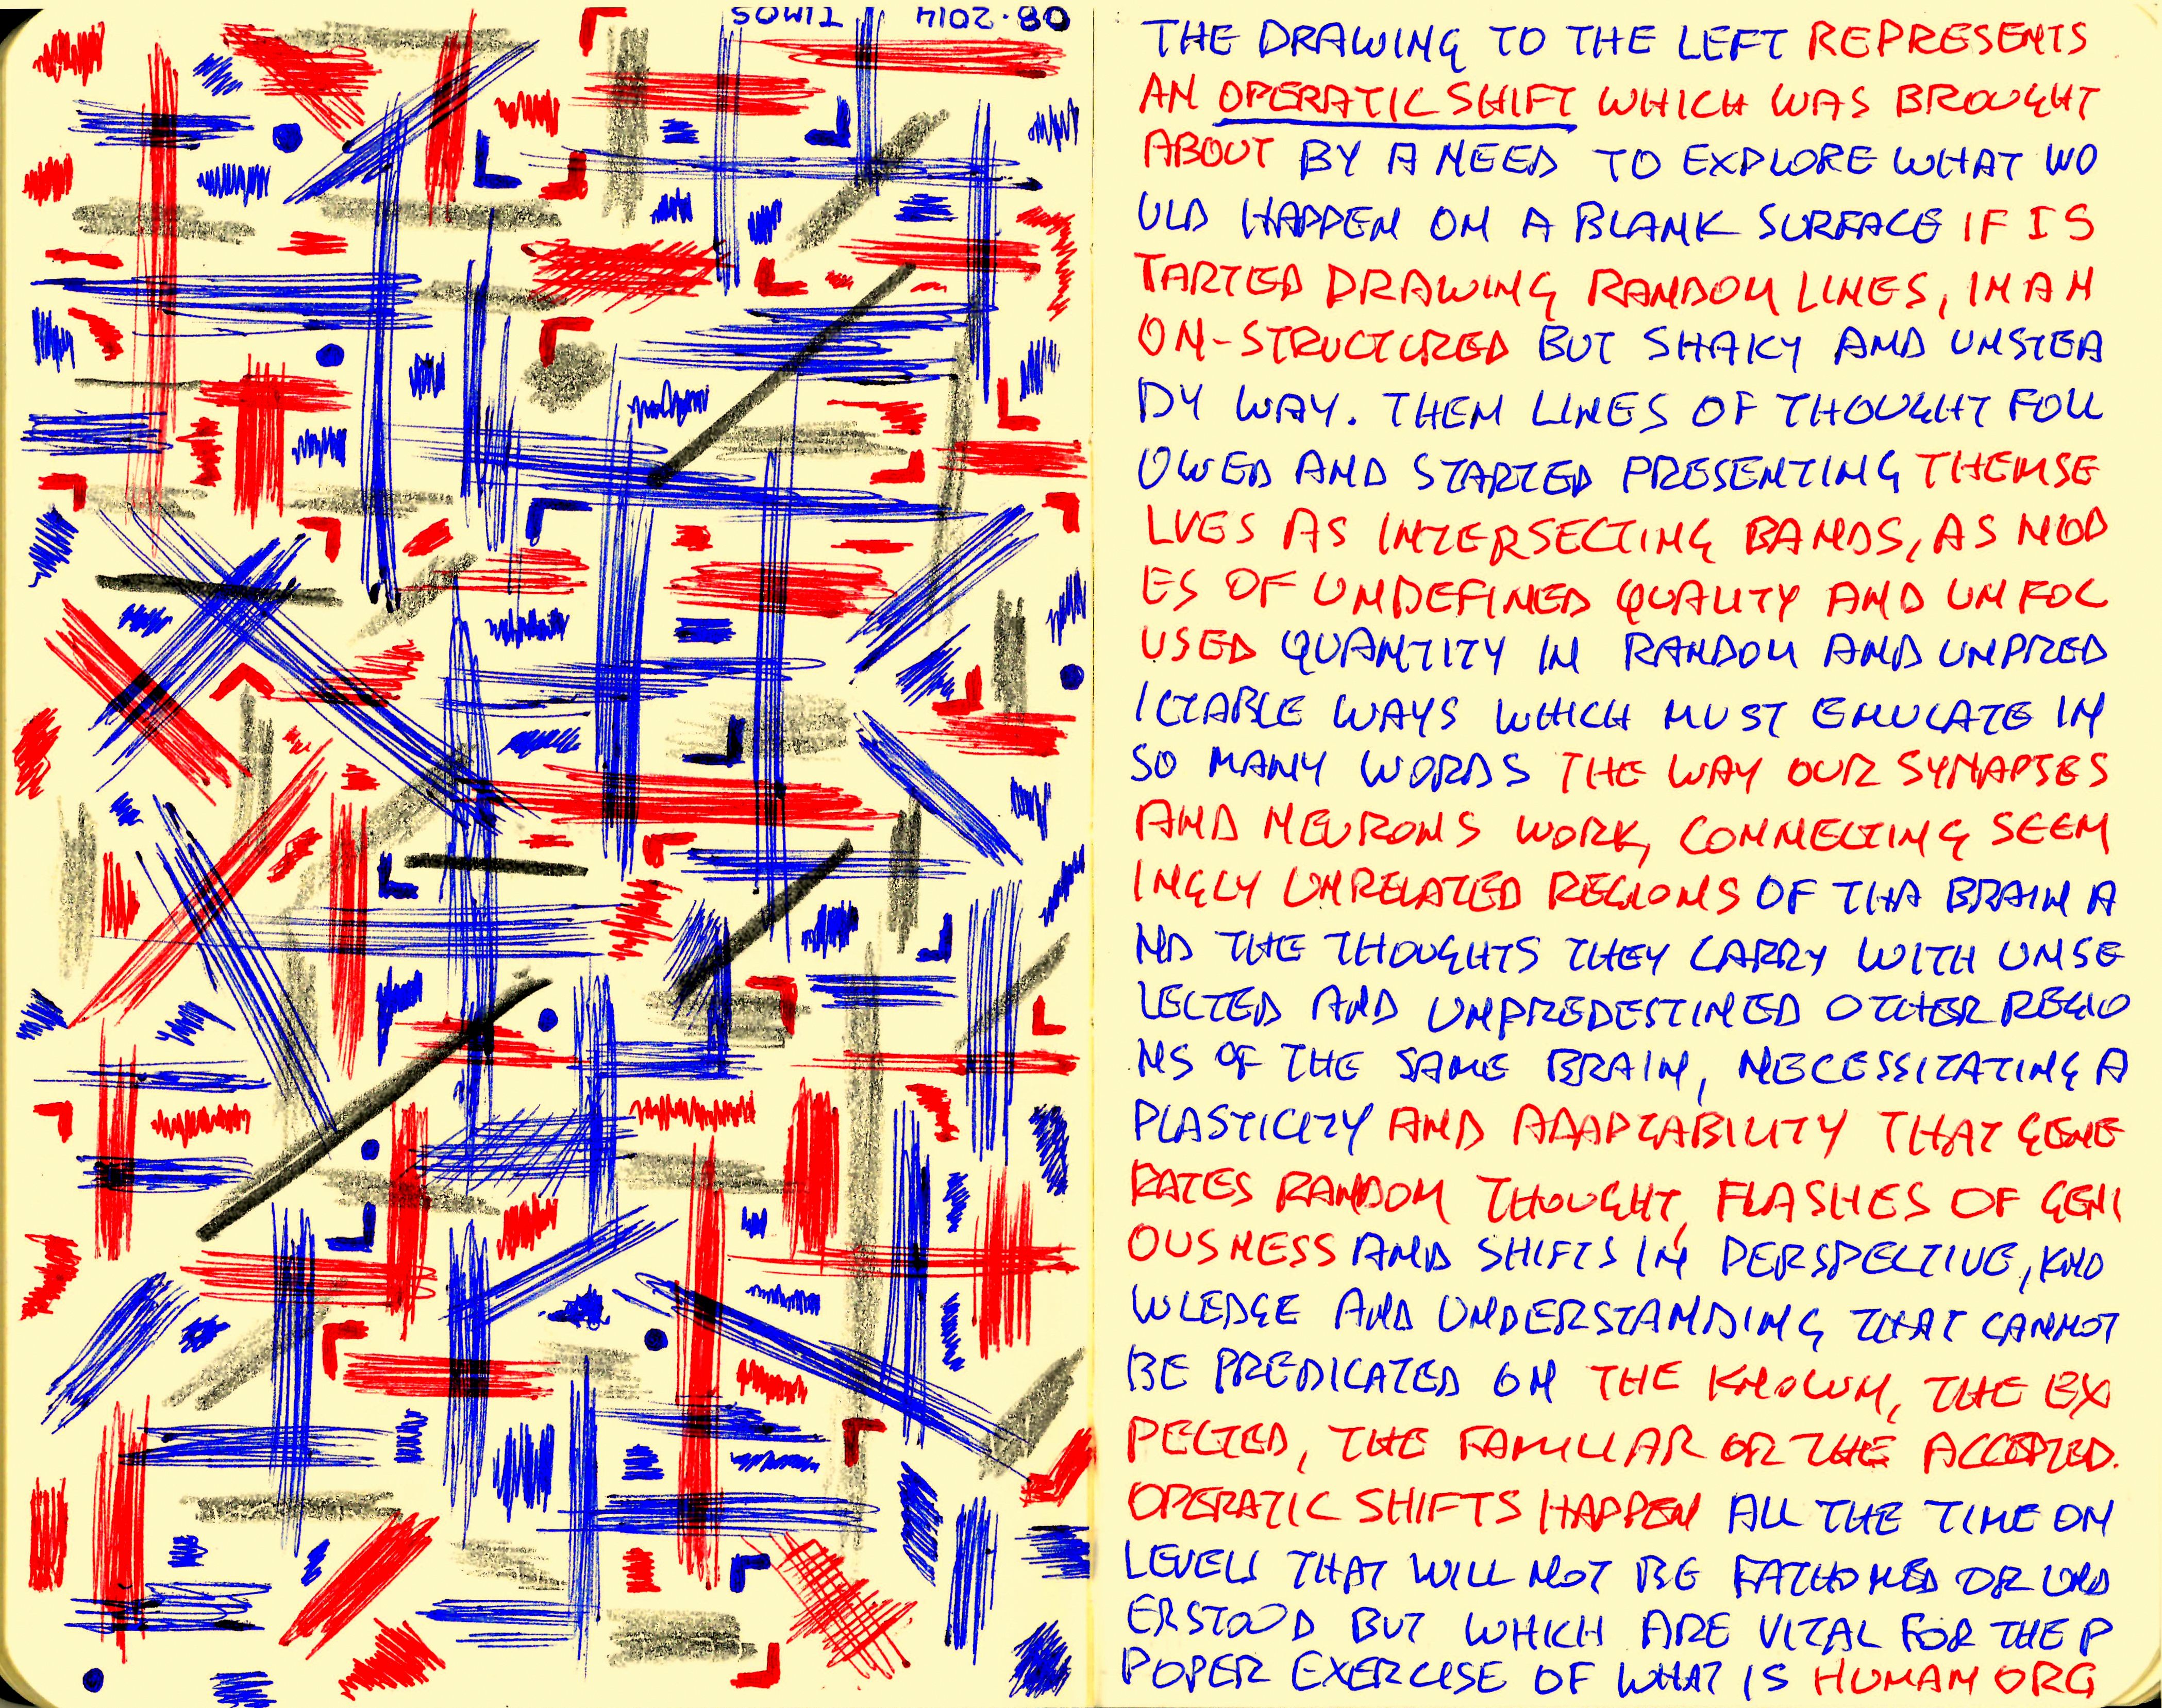 08·2014 TIMOS
THE DRAWING TO THE LEFT REPRESENTS
AN OPERATIC SHIFT WHICH WAS BROUGHT
ABOUT BY A NEED TO EXPLORE WHAT WO
ULD HAPPEN ON A BLANK SURFACE IF I S
TARTED DRAWING RANDOM LINES, IN A N
ON-STRUCTURED BUT SHAKY AND UNSTEA
DY WAY. THEN LINES OF THOUGHT FOLL
OWED AND STARTED PRESENTING THEMSE
LVES AS INTERSECTING BANDS, AS NOD
ES OF UNDEFINED QUALITY AND UNFOC
USED QUANTITY IN RANDOM AND UNPRED
ICTABLE WAYS WHICH MUST EMULATE IN
SO MANY WORDS THE WAY OUR SYNAPSES
AND NEURONS WORK, CONNECTING SEEM
INGLY UNRELATED REGIONS OF THA BRAIN A
ND THE THOUGHTS THEY CARRY WITH UNSE
LECTED AND UNPREDESTINED OTHER REGIO
NS OF THE SAME BRAIN, NECESSITATING A
PLASTICITY AND ADAPTABILITY THAT GENE
RATES RANDOM THOUGHT, FLASHES OF GENI
OUSNESS AND SHIFTS IN PERSPECTIVE, KNO
WLEDGE AND UNDERSTANDING THAT CANNOT
BE PREDICATED ON THE KNOWN, THE EX
PECTED, THE FAMILIAR OR THE ACCEPTED.
OPERATIC SHIFTS HAPPEN ALL THE TIME ON
LEVELS THAT WILL NOT BE FATHOMED OR UND
ERSTOOD BUT WHICH ARE VITAL FOR THE P
POPER EXERCISE OF WHAT IS HUMAN ORG